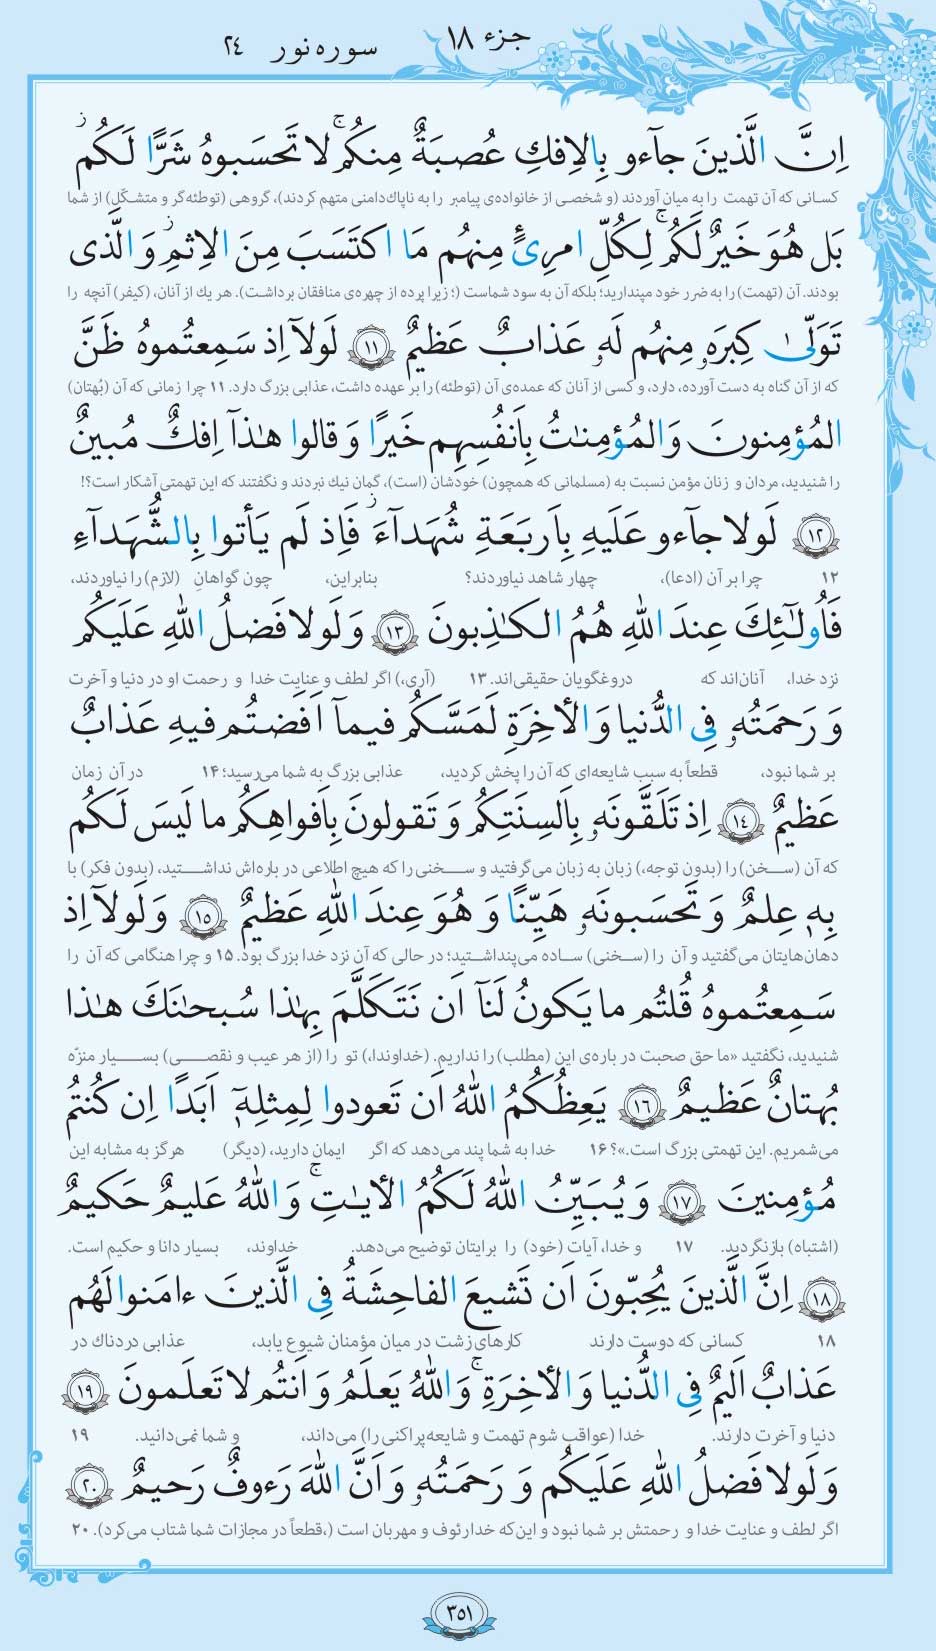 جزء ۱۸
سوره نور ۲۴
اِنَّ الَّذينَ جآءو بِالاِفكِ عُصبَةٌ مِنكُم ۚ لا تَحسَبوهُ شَرًّا لَكُم ۖ
کسانی که آن تهمت را به میان آوردند (و شخصی از خانواده‌ی پیامبر را به ناپاک‌دامنی متهم کردند)، گروهی (توطئه‌گر و متشکّل) از شما
بَل هُوَ خَيرٌ لَكُم ۚ لِكُلِّ امرِئٍ مِنهُم مَا اكتَسَبَ مِنَ الاِثمِ ۚ وَ الَّذى
بودند. آن (تهمت) را به ضرر خود میندارید؛ بلکه آن به سود شماست (؛ زیرا پرده از چهره‌ی منافقان برداشت). هر یک از آنان، (کیفر) آنچه را
تَوَلّىٰ كِبرَهۥ مِنهُم لَهۥ عَذابٌ عَظيمٌ ۱۱ لَولآ اِذ سَمِعتُموهُ ظَنَّ
که از آن گناه به دست آورده، دارد، و کسی از آنان که عمده‌ی آن (توطئه) را بر عهده داشت، عذابی بزرگ دارد. ۱۱ چرا زمانی که آن (بُهتان)
المُؤمِنونَ وَ المُؤمِنٰتُ بِاَنفُسِهِم خَيرًا وَ قالوا هٰذآ اِفكٌ مُبينٌ
را شنیدید، مردان و زنان مؤمن نسبت به (مسلمانی که همچون) خودشان (است)، گمان نیک نبردند و نگفتند که این تهمتی آشکار است؟!
۱۲ لَولا جآءو عَلَيهِ بِاَربَعَةِ شُهَدآءَ ۚ فَاِذ لَم يَأتوا بِالشُّهَدآءِ
۱۲ چرا بر آن (ادعا)، چهار شاهد نیاوردند؟ بنابراین، چون گواهانِ (لازم) را نیاوردند،
فَاُولٰٓئِكَ عِندَ اللهِ هُمُ الكٰذِبونَ ۱۳ وَ لَولا فَضلُ اللهِ عَلَيكُم
نزد خدا، آنان‌اند که دروغگویان حقیقی‌اند. ۱۳ (آری،) اگر لطف و عنایت خدا و رحمت او در دنیا و آخرت
وَ رَحمَتُهۥ فِى الدُّنيا وَ الأخِرَةِ لَمَسَّكُم فيمآ اَفَضتُم فيهِ عَذابٌ
بر شما نبود، قطعاً به سبب شایعه‌ای که آن را پخش کردید، عذابی بزرگ به شما می‌رسید؛ ۱۴ در آن زمان
عَظيمٌ ۱۴ اِذ تَلَقَّونَهۥ بِاَلسِنَتِكُم وَ تَقولونَ بِاَفواهِكُم ما لَيسَ لَكُم
که آن (سخن) را (بدون توجه،) زبان به زبان می‌گرفتید و سخنی را که هیچ اطلاعی در باره‌اش نداشتید، (بدون فکر) با
بِهٖ عِلمٌ وَ تَحسَبونَهۥ هَيِّنًا وَ هُوَ عِندَ اللهِ عَظيمٌ ۱۵ وَ لَولآ اِذ
دهان‌هایتان می‌گفتید و آن را (سخنی) ساده می‌پنداشتید؛ در حالی که آن نزد خدا بزرگ بود. ۱۵ و چرا هنگامی که آن را
سَمِعتُموهُ قُلتُم ما يَكونُ لَنآ اَن نَتَكَلَّمَ بِهٰذا سُبحٰنَكَ هٰذا
شنیدید، نگفتید «ما حق صحبت در باره‌ی این (مطلب) را نداریم. (خداوندا،) تو را (از هر عیب و نقصی) بسیار منزّه
بُهتانٌ عَظيمٌ ۱۶ يَعِظُكُمُ اللهُ اَن تَعودوا لِمِثلِهٖٓ اَبَدًا اِن كُنتُم
می‌شمریم. این تهمتی بزرگ است.»؟ ۱۶ خدا به شما پند می‌دهد که اگر ایمان دارید، (دیگر) هرگز به مشابه این
مُؤمِنينَ ۱۷ وَ يُبَيِّنُ اللهُ لَكُمُ الأيٰتِ ۚ وَ اللهُ عَليمٌ حَكيمٌ
(اشتباه) بازنگردید. ۱۷ و خدا، آیات (خود) را برایتان توضیح می‌دهد. خداوند، بسیار دانا و حکیم است.
۱۸ اِنَّ الَّذينَ يُحِبّونَ اَن تَشيعَ الفاحِشَةُ فِى الَّذينَ ءامَنوا لَهُم
۱۸ کسانی که دوست دارند کارهای زشت در میان مؤمنان شیوع یابد، عذابی دردناک در
عَذابٌ اَليمٌ فِى الدُّنيا وَ الأخِرَةِ ۚ وَ اللهُ يَعلَمُ وَ اَنتُم لا تَعلَمونَ ۱۹
دنیا و آخرت دارند. خدا (عواقب شوم تهمت و شایعه‌پراکنی را) می‌داند، و شما نمی‌دانید. ۱۹
وَ لَولا فَضلُ اللهِ عَلَيكُم وَ رَحمَتُهۥ وَ اَنَّ اللهَ رَءوفٌ رَحيمٌ ۲۰
اگر لطف و عنایت خدا و رحمتش بر شما نبود و این‌که خدا رئوف و مهربان است (،قطعاً در مجازات شما شتاب می‌کرد). ۲۰
۳۵۱